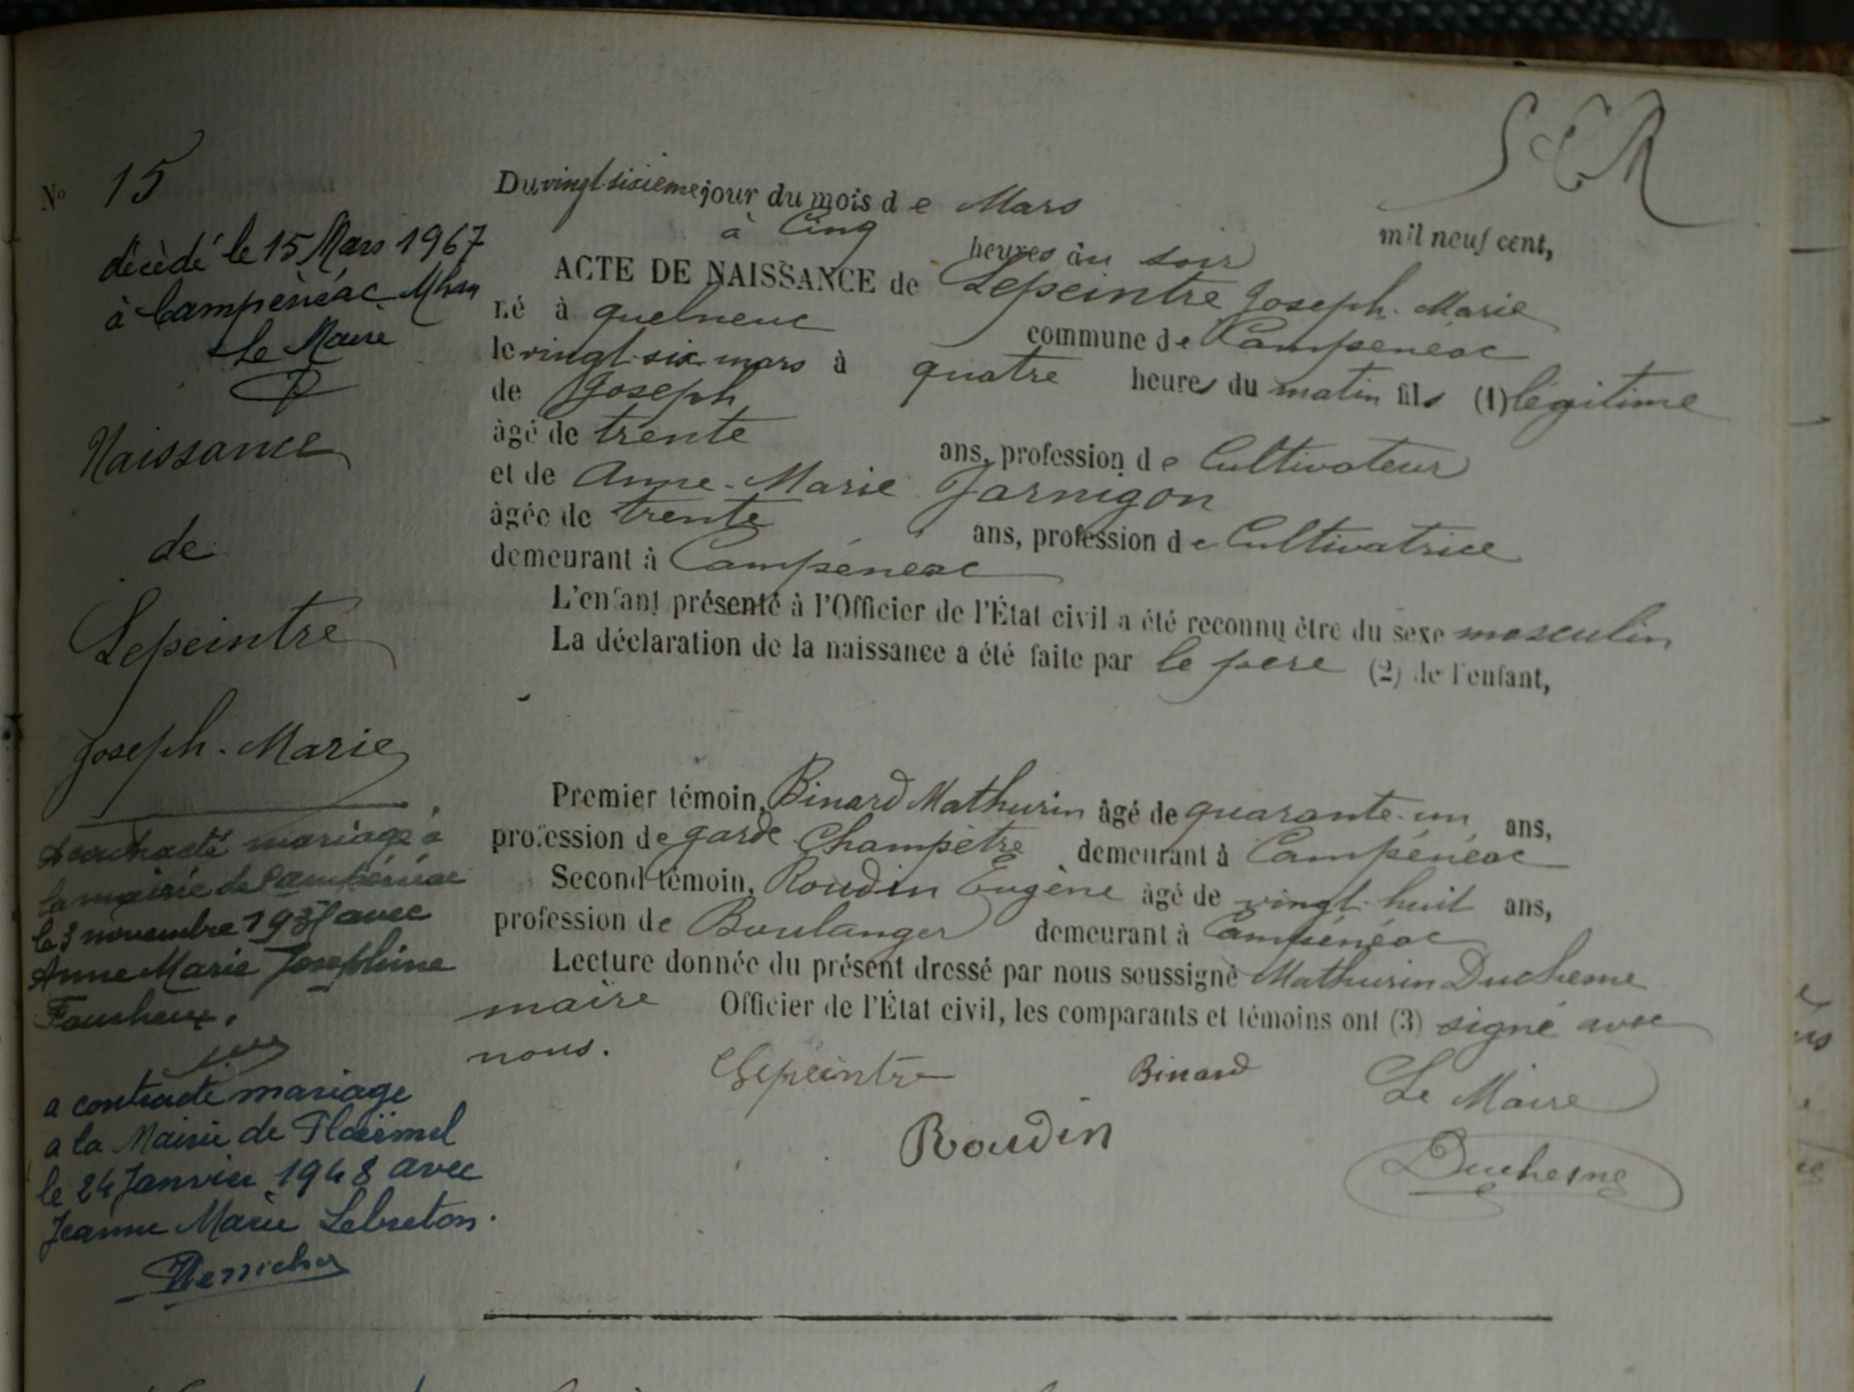 N° 15
décèdé le 15 Mars 1967
à Campénéac
Le Maire
Naissance
de
Lepeintre
Joseph-Marie
A contracté mariage à
la mairie de Campénéac
le 3 novembre avec
Anne Marie Josephine
Faucheux.
a contracté mariage
a la Mairie de Ploërmel
le 24 Janvier 1948 avec
Jeanne Marie Lebreton.
Du vingt-sixième jour du mois de Mars mil neuf cent,
à Cinq heures du soir
ACTE DE NAISSANCE de Lepeintre Joseph-Marie
né à quelneuc commune de Campénéac
le vingt-six mars à quatre heures du matin fils (1) légitime
de Joseph
âgé de trente ans, profession de Cultivateur
et de Anne-Marie Jarnigon
âgée de trente ans, profession de Cultivatrice
demeurant à Campénéac
L'enfant présenté à l'Officier de l'État civil a été reconnu être du sexe masculin
La déclaration de la naissance a été faite par le père (2) de l'enfant,
Premier témoin, Binard Mathurin âgé de quarante-un ans,
profession de garde Champêtre demeurant à Campénéac
Second témoin, Roudin Eugène âgé de vingt-huit ans,
profession de Boulanger demeurant à Campénéac
Lecture donnée du présent dressé par nous soussigné Mathurin Duchesne
maire Officier de l'État civil, les comparants et témoins ont (3) signé avec
nous.
Lepeintre Binard Le Maire
Roudin Duchesne